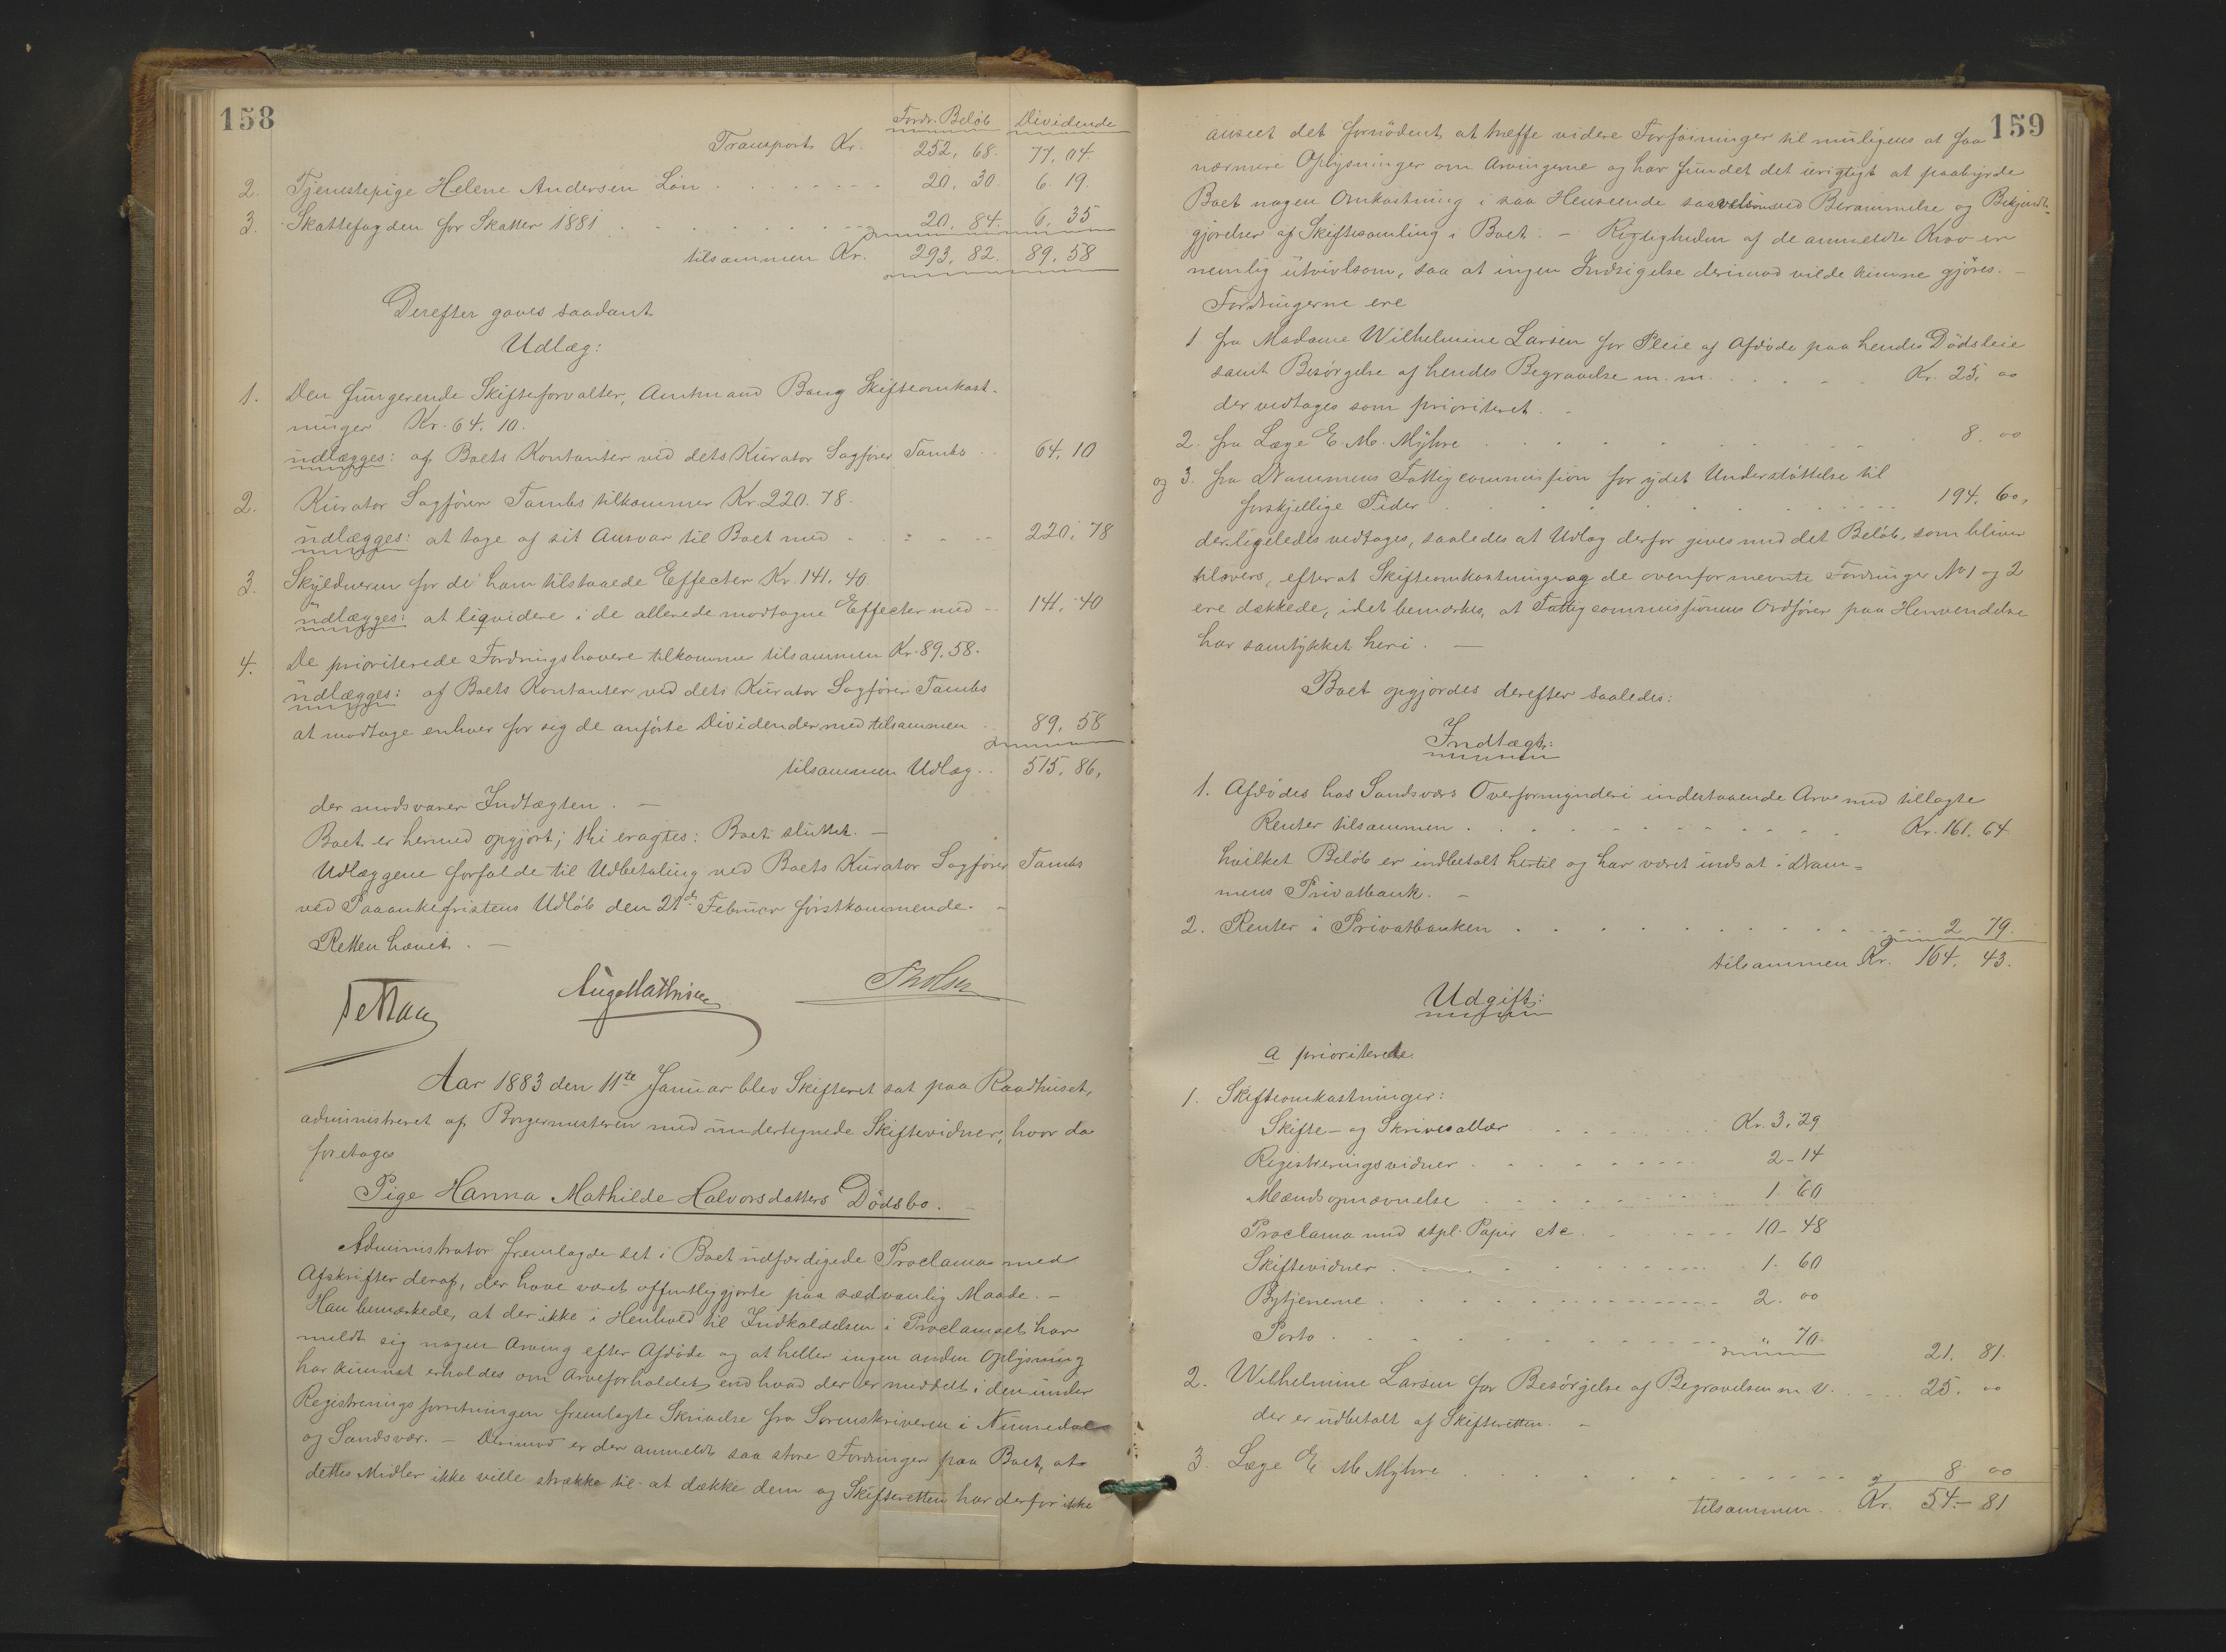 158
Fordr. Beløb Dividende
Transport Kr. 252, 68. 77. 04.
2. Tjenestepige Helene Andersen Løn 20, 30. 6. 19.
3. Skattefogden for Skatter 1881 20. 84. 6. 35
tilsammen Kr. 293. 82. 89. 58
Derefter gaves saadant
Udlæg:
1. Den fungerende Skifteforvalter, Amtmand Bang Skifteomkost-
ninger Kr. 64. 10.
udlægges: af Boets Kontanter ved dets Kurator Sagfører Tambs 64. 10
2. Kurator Sagfører Tambs tilkommer Kr. 220. 78.
udlægges: at tage af sit Ansvar til Boet med 220. 78
3. Skyldneren for de ham tilstaaede Effecter Kr. 141. 40.
udlægges: at liqvidere i de allerede modtagne Effecter med 141. 40
4. De prioriterede Fordringshavere tilkomme tilsammen Kr. 89. 58.
udlægges: af Boets Kontanter ved dets Kurator Sagfører Tambs
at modtage enhver for sig de anførte Dividender med tilsammen 89. 58
tilsammen Udlæg 515. 86,
der modsvarer Indtægten. —
Boet er hermed opgjort; thi eragtes: Boet sluttet. —
Udlæggene forfalde til Udbetaling ved Boets Kurator Sagfører Tambs
ved Paaankefristens Udløb den 21de Februar førstkommende. —
Retten hævet. —
Aug Mathisen
Th Olsen
Aar 1883 den 11te Januar blev Skifteret sat paa Raadhuset,
administreret af Borgermesteren med undertegnede Skiftevidner, hvor da
foretages
Pige Hanna Mathilde Halvorsdatters Dødsbo. —
Administrator fremlagde det i Boet udfærdigede Proclama med
Afskrifter deraf, der have været offentliggjorte paa sædvanlig Maade. —
Han bemærkede, at der ikke i Henhold til Indkaldelsen i Proclamaet har
meldt sig nogen Arving efter Afdøde og at heller ingen anden Oplysning
har kunnet erholdes om Arveforholdet, end hvad der er meddelt i den under
Registreringsforretningen fremlagte Skrivelse fra Sorenskriveren i Numedal
og Sandsvær. — Derimod er der anmeldt saa store Fordringer paa Boet, at
dettes Midler ikke ville strække til at dække dem og Skifteretten har derfor ikke
159
anseet det fornødent at træffe videre Forføininger til muligens at faa
nærmere Oplysninger om Arvingerne og har fundet det urigtigt at paabyrde
Boet nogen Omkostning i saa Henseende saavelsom ved Berammelse og Bekjendt-
gjørelser af Skiftesamling i Boet. — Rigtigheden af de anmeldte Krav er
nemlig utvivlsom, saa at ingen Indsigelse derimod vilde kunne gjøres. —
Fordringerne ere
1 fra Madame Wilhelmine Larsen for Pleie af Afdøde paa hendes Dødsleie
samt Besørgelse af hendes Begravelse m. m. Kr. 25. 00
der vedtages som prioriteret. —
2. fra Læge E. M. Myhre 8. 00
og 3. fra Drammens Fattigcommission for ydet Understøttelse til
forskjellige Tider 194. 60,
der ligeledes vedtages, saaledes at Udlæg derfor gives med det Beløb, som bliver
tilovers, efterat Skifteomkostninger og de ovenfor nævnte Fordringer No 1 og 2
ere dækkede, idet bemærkes, at Fattigcommissionens Ordfører paa Henvendelse
har samtykket heri. —
Boet opgjordes derefter saaledes:
Indtægt:
1. Afdødes hos Sandsværs Overformynderi indestaaende Arv med tillagte
Renter tilsammen Kr. 161. 64.
hvilket Beløb er indbetalt hertil og har været indsat i Dram-
mens Privatbank. —
2. Renter i Privatbanken 2 79.
tilsammen Kr. 164. 43.
Udgift:
a prioriterede.
1. Skifteomkostninger:
Skifte- og Skrivesallær Kr. 3. 29
Registreringsvidner 2 - 14
Mændsopnævnelse 1. 60
Proclama med stpl. Papir etc. 10 - 48
Skiftevidner 1. 60
Bytjenerne 2. 00
Porto " 70. 21. 81.
2. Wilhelmine Larsen for Besørgelse af Begravelsen m. v. 25. 00
der er udbetalt af Skifteretten. —
3. Læge E. M. Myhre 8 00
tilsammen Kr. 54. — 81